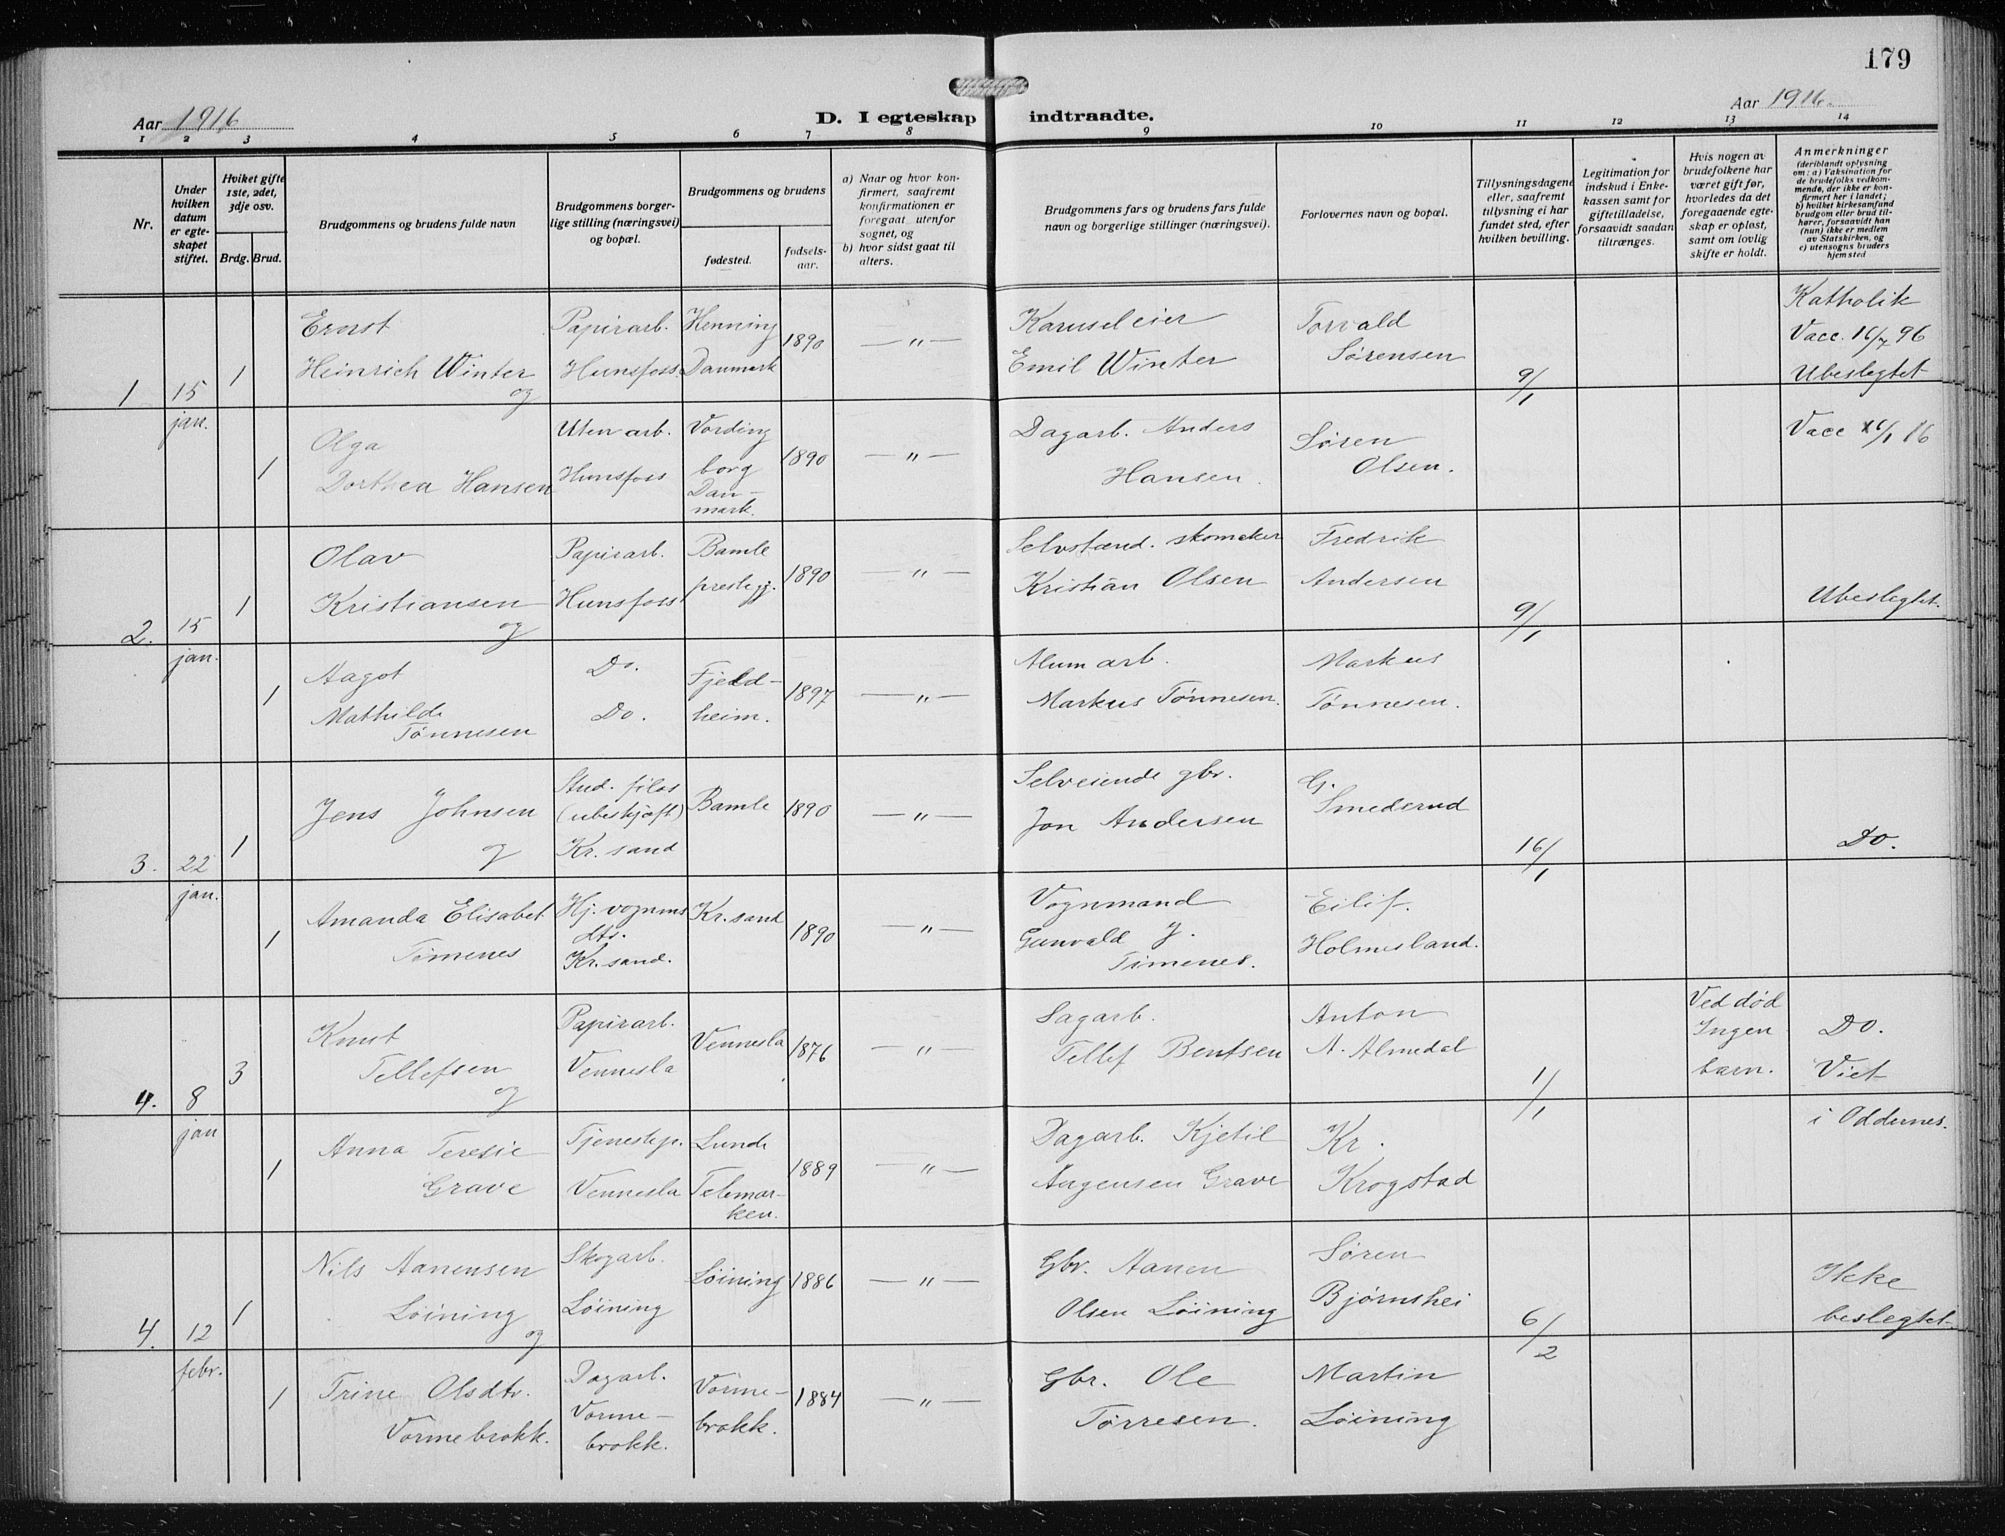 179
Aar 1916
D. I egteskap indtraadte.
Aar 1916.
1 2 3 4 5 6 7 8 9 10 11 12 13 14
Nr.
Under hvilken datum er egteskapet stiftet.
Hviket gifte 1ste, 2det, 3dje osv.
Brdg. Brud.
Brudgommens og brudens fulde navn
Brudgommens borgerlige stilling (næringsvei) og bopæl.
Brudgommens og brudens
fødested.
fødselsaar.
a) Naar og hvor konfirmert, saafremt konfirmationen er foregaat utenfor sognet, og
b) hvor sidst gaat til alters.
Brudgommens fars og brudens fars fulde navn og borgerlige stillinger (næringsvei).
Forlovernes navn og bopæl.
Tillysningsdagene eller, saafremt tillysning ei har fundet sted, efter hvilken bevilling.
Legitimation for indskud i Enkekassen samt for giftetilladelse, forsaavidt saadan tiltrænges.
Hvis nogen av brudefolkene har været gift før, hvorledes da det foregaaende egteskap er opløst, samt om lovlig skifte er holdt.
Anmerkninger
(deriblandt oplysning om: a) Vaksination for de brudefolks vedkommende, der ikke er konfirmert her i landet; b) hvilket kirkesamfund brudgom eller brud tilhører, forsaavidt han (hun) ikke er medlem av Statskirken, og c) utensogns bruders hjemsted
1 15 jan. 1 Ernst Heinrich Winter og
Papirarb. Hunsfoss.
Henning Danmark 1890 — " —
Karuseleier Emil Winter
Torvald Sørensen
9/1
Katholik
Vacc. 16/7 96
Ubeslegtet
1 Olga Dorthea Hansen
Uten arb. Hunsfoss
Vordingborg Danmark. 1890 — " —
Dagarb. Anders Hansen.
Søren Olsen.
Vacc 16/1 16
2. 15 jan. 1 Olav Kristiansen og
Papirarb. Hunsfoss
Bamle prestegj. 1890 — " —
Selvstænd. skomaker Kristian Olsen
Fredrik Andersen
9/1
Ubeslegtet.
1 Aagot Mathilde Tønnesen
Do. Do.
Fjeldheim. 1897 — " —
Alum arb. Markus Tønnesen.
Markus Tønnesen.
3. 22 jan. 1 Jens Johnsen og
Stud. filos (ubeskjæft) Kr. sand
Bamle 1890 — " —
Selveiende gbr. Jon Andersen
G. Smederud
16/1
Do.
1 Amanda Elisabet Timenes
Hj. vognms dtr. Kr. sand.
Kr. sand 1890 — " —
Vognmand Gunvald J. Timenes.
Eilif. Holmesland.
4. 8 jan 3 Knut Tellefsen og
Papirarb. Vennesla
Vennesla 1876 — " —
Sagarb. Tellef Bentsen
Anton A. Almedal
1/1
Ved død Ingen barn.
Do.
Viet i Oddernes.
1 Anna Teresie Grave
Tjenestep. Vennesla
Lunde Telemarken. 1889 — " —
Dagarb. Kjetil Augensen Grave
Kr. Krogstad
4. 12 febr. 1 Nils Aanensen Løining og
Skogarb. Løining
Løining 1886 — " —
Gbr. Aanen Olsen Løining
Søren Bjørnshei
6/2
Ikke beslegtet.
1 Trine Olsdtr. Vormebrokk.
Dagarb. Vormebrokk.
Vormebrokk. 1884 — " —
Gbr. Ole Tørresen.
Martin Løining